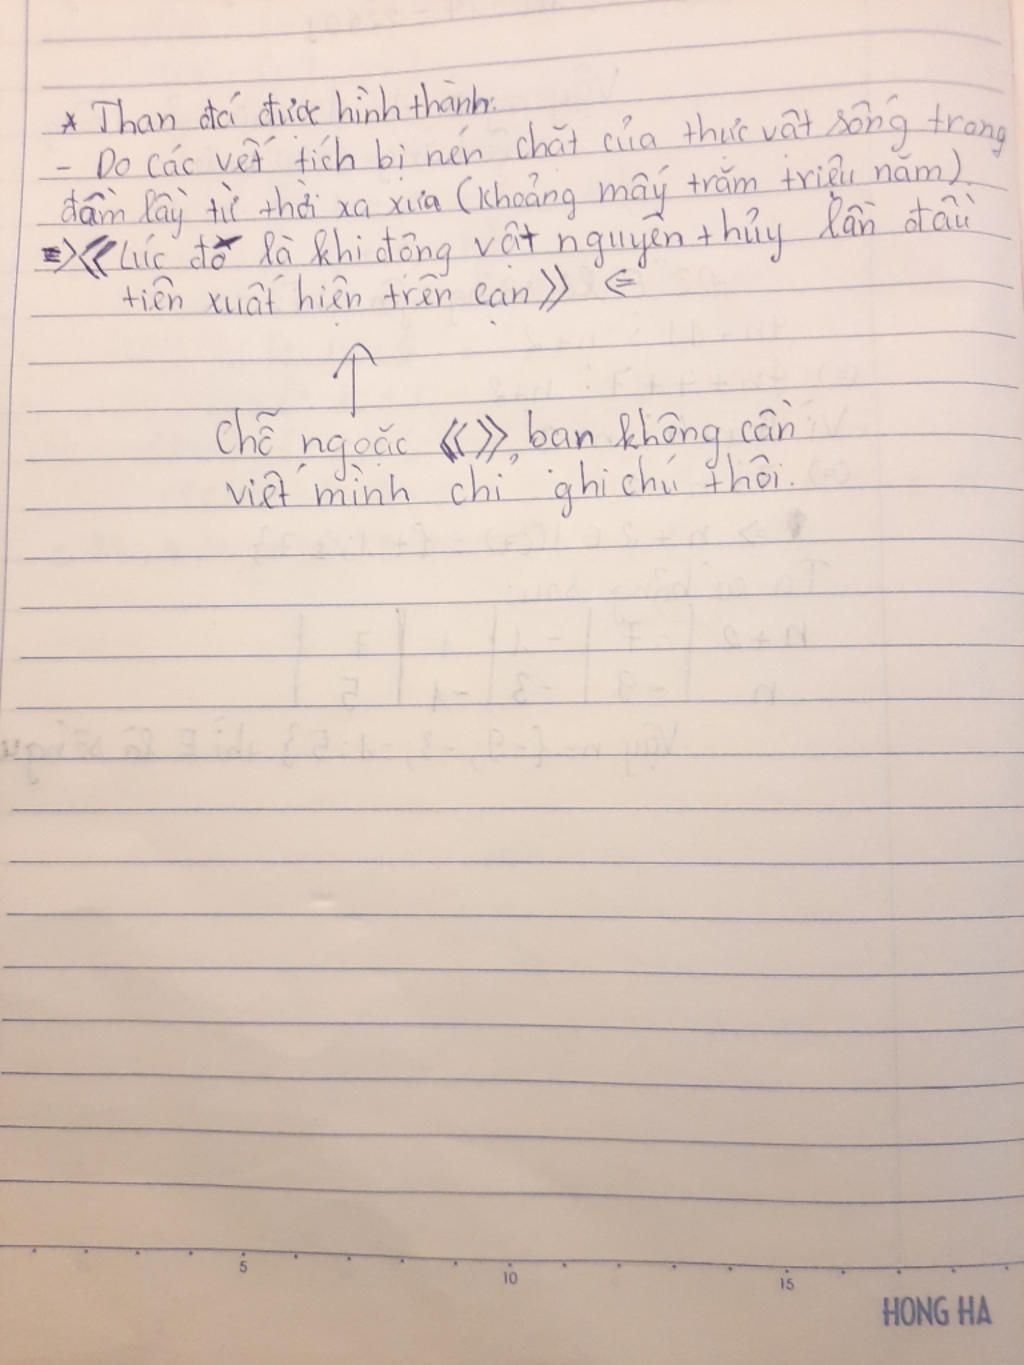 * Than đá được hình thành:
- Do các vết tích bị nén chặt của thực vật sống trong
đầm lầy từ thời xa xưa (khoảng mấy trăm triệu năm)
=> 《Lúc đó là khi động vật nguyên thủy lần đầu
tiên xuất hiện trên cạn》 <=
Chỗ ngoặc 《》, bạn không cần
viết mình chỉ ghi chú thôi.
5 10 15
HONG HA